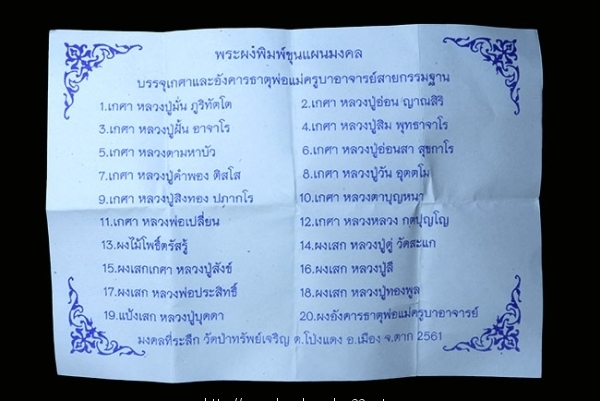 พระผงพิมพ์ขุนแผนมงคล
บรรจุเกศาและอังคารธาตุพ่อแม่ครูบาอาจารย์สายกรรมฐาน
1.เกศา หลวงปู่มั่น ภูริทัตโต 2.เกศา หลวงปู่อ่อน ญาณสิริ
3.เกศา หลวงปู่ฝั้น อาจาโร 4.เกศา หลวงปู่สิม พุทธาจาโร
5.เกศา หลวงตามหาบัว 6.เกศา หลวงปู่อ่อนสา สุขกาโร
7.เกศา หลวงปู่คำพอง ติสโส 8.เกศา หลวงปู่วัน อุตตโม
9.เกศา หลวงปู่สิงทอง ปภากโร 10.เกศา หลวงตาบุญหนา
11.เกศา หลวงพ่อเปลี่ยน 12.เกศา หลวงหลวง กตปุญโญ
13.ผงไม้โพธิ์ตรัสรู้ 14.ผงเสก หลวงปู่ดู่ วัดสะแก
15.ผงเสกเกศา หลวงปู่สังข์ 16.ผงเสก หลวงปู่สี
17.ผงเสก หลวงพ่อประสิทธิ์ 18.ผงเสก หลวงปู่ทองพูล
19.แป้งเสก หลวงปู่บุดดา 20.ผงอังคารธาตุพ่อแม่ครูบาอาจารย์
มงคลที่ระลึก วัดป่าทรัพย์เจริญ ต.โป่งแดง อ.เมือง จ.ตาก 2561